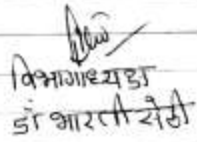 विभागाध्यक्षा
डॉ भारती सेठी